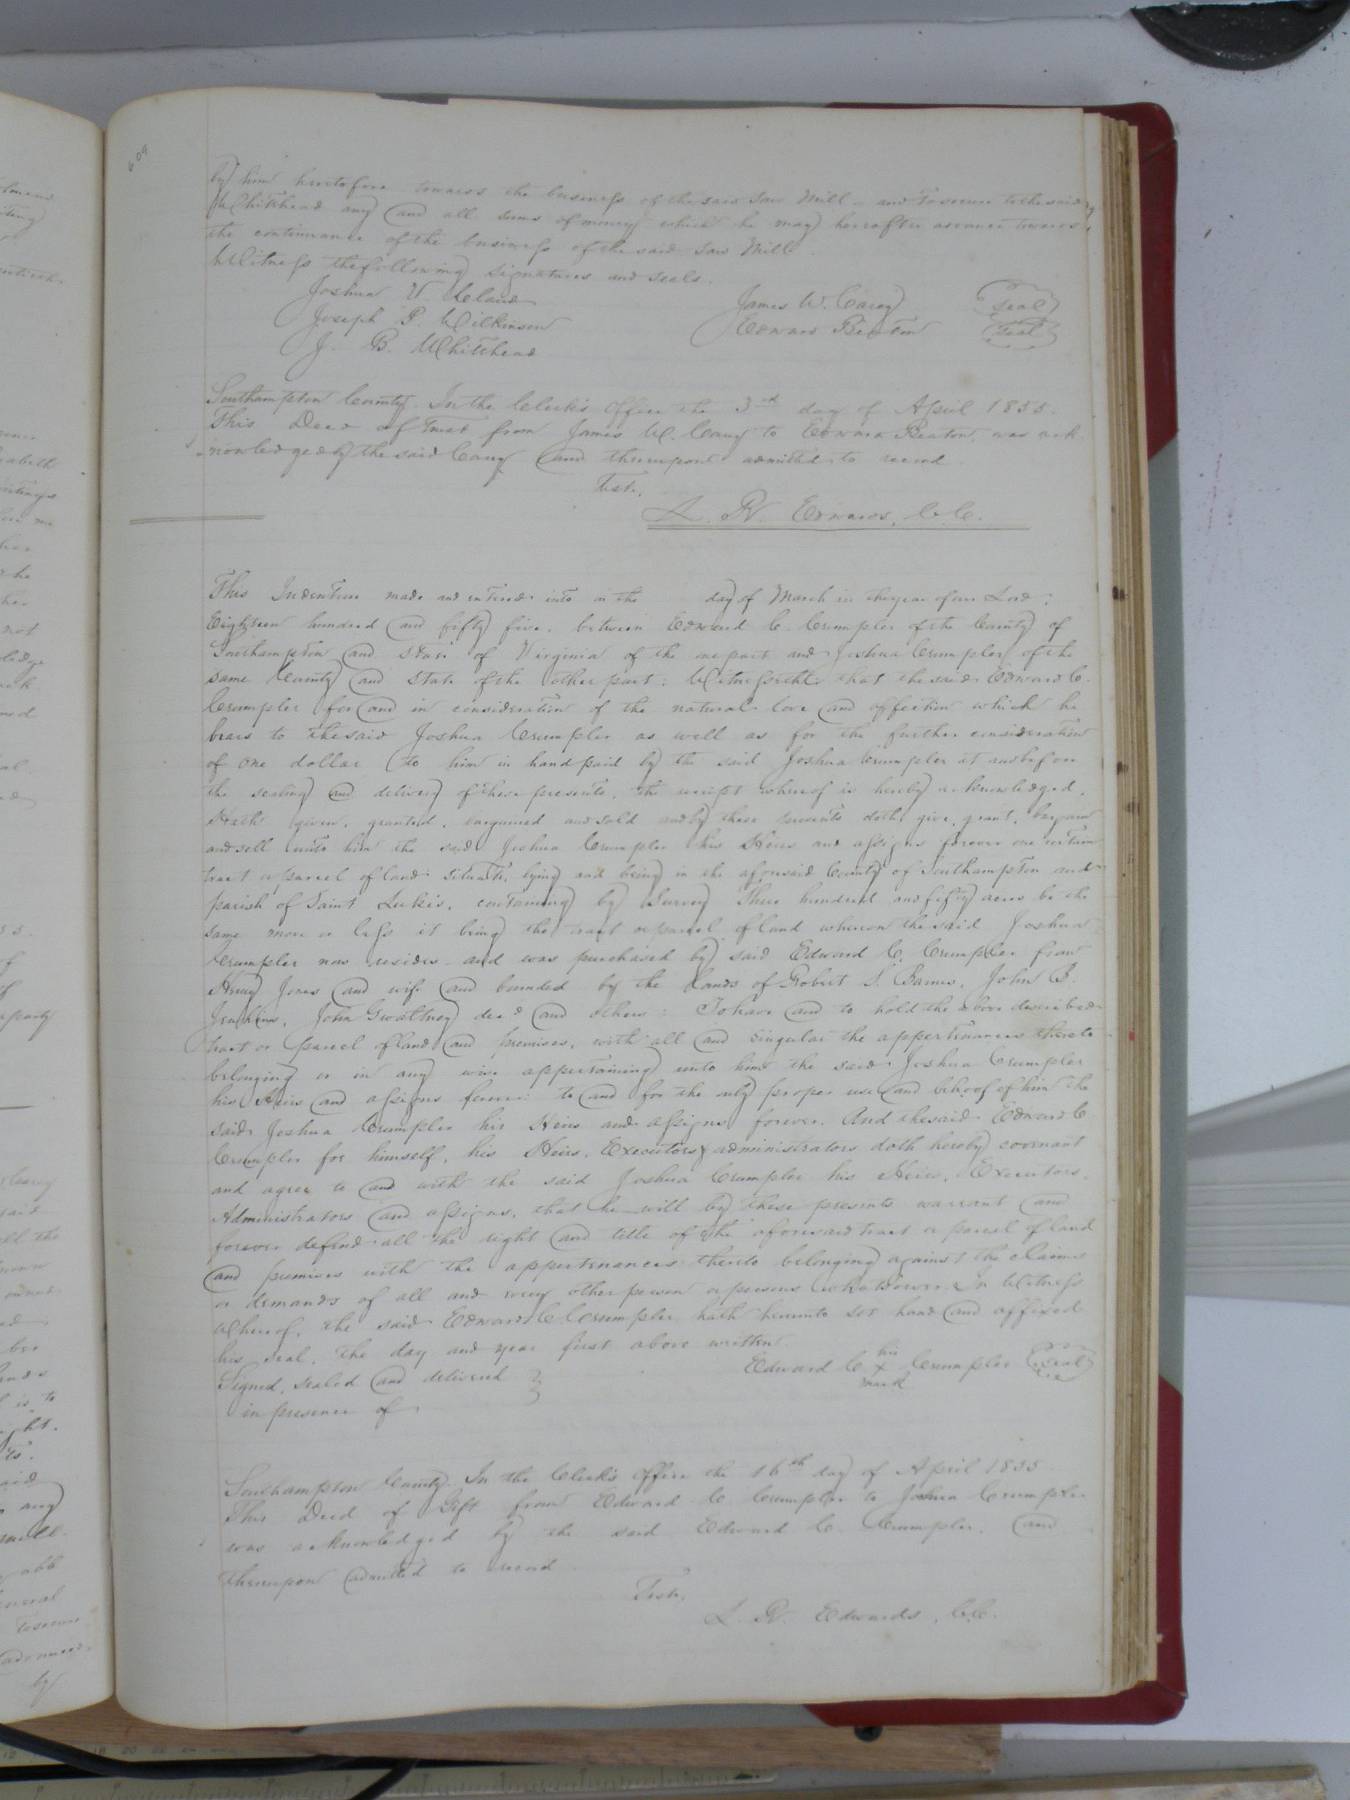 609
by him heretofore towards the business of the said Saw Mill - and To secure to the said
Whitehead any and all sums of money which he may hereafter advance towards
the continuance of the business of the said Saw Mill.
Witness the following signatures and seals.
Joshua W. Claud
James W. Carey (Seal)
Joseph P. Wilkinson
Edward Beaton (Seal)
J. B. Whitehead
Southampton County. In the Clerk's Office the 3rd day of April 1855.
This Deed of Trust from James W. Cary to Edward Beaton, was ack
nowledged by the said Cary and thereupon admitted to record
Test,
L. R. Edwards, C.C.
This Indenture made and entered into on the day of March in the year of our Lord:
Eighteen hundred and fifty five, between Edward C. Crumpler of the County of
Southampton and State of Virginia of the one part and Joshua Crumpler of the
same County and State of the other part: Witnesseth that the said Edward C.
Crumpler for and in consideration of the natural love and affection which he
bears to the said Joshua Crumpler as well as for the further consideration
of one dollar to him in hand paid by the said Joshua Crumpler at and before
the sealing and delivery of these presents, the receipt whereof is hereby acknowledged,
Hath given, granted, bargained and sold and by these presents doth give, grant, bargain
and sell unto him the said Joshua Crumpler his Heirs and assigns forever one certain
tract or parcel of land situate, lying and being in the aforesaid County of Southampton and
parish of Saint Lukes, containing by Survey Three hundred and fifty acres be the
same more or less it being the tract or parcel of land whereon the said Joshua
Crumpler now resides and was purchased by said Edward C. Crumpler from
Henry Jones and wife and bounded by the Lands of Robert S. Barnes, John B.
Jenkins, John Gwaltney decd and others: To have and to hold the above described
tract or parcel of land and premises, with all and singular the appertenances thereto
belonging or in any wise appertaining unto him the said Joshua Crumpler
his Heirs and assigns forever: to and for the only proper use and behoof of him the
said Joshua Crumpler his Heirs and assigns forever. And the said Edward C.
Crumpler for himself, his Heirs, Executors & administrators doth hereby covenant
and agree to and with the said Joshua Crumpler his Heirs, Executors,
Administrators and assigns, that he will by these presents warrant and
forever defend all the right and title of the aforesaid tract or parcel of land
and premises with the appertenances thereto belonging against the claims
or demands of all and every other person or persons whatsoever. In Witness
Whereof, the said Edward C. Crumpler hath hereunto set hand and affixed
his seal, the day and year first above written.
Edward C his x mark Crumpler (Seal)
Signed, sealed and delivered
in presence of
Southampton County. In the Clerk's Office the 16th day of April 1855.
This Deed of Gift from Edward C Crumpler to Joshua Crumpler
was acknowledged by the said Edward C. Crumpler, and
thereupon admitted to record.
Test,
L. R. Edwards, C.C.